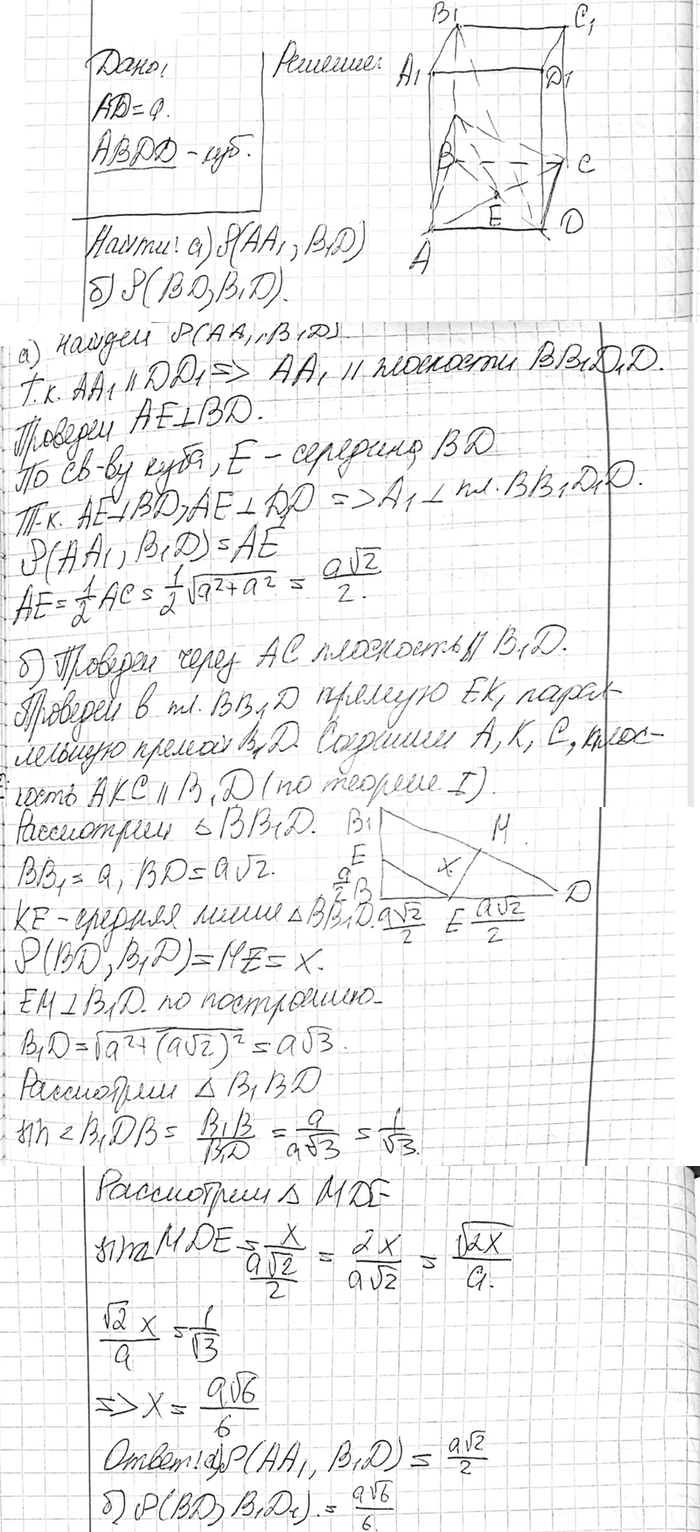 Дано,
AD=a.
ABDD - куб.
Решение:
B₁
C₁
A₁
D₁
B
C
E
A
D
Найти: а) ρ(AA₁, B₁D)
б) ρ(BD, B₁D).
а) найдем ρ(AA₁, B₁D).
Т.к. AA₁ ∥ DD₁ => AA₁ ∥ плоскости BB₁D₁D.
Проведем AE⊥BD.
По св-ву куба, E - середина BD
Т.к. AE⊥BD, AE⊥D₁D => A₁⊥ пл. BB₁D₁D.
ρ(AA₁, B₁D)=AE
AE=1/2 AC=1/2 √(a²+a²) = a√2/2.
б) Проведем через AC плоскость ∥ B₁D.
Проведем в пл. BB₁D прямую EK, парал-
лельную прямой B₁D. Соединим A, K, C, плос-
кость AKC ∥ B₁D (по теореме I).
Рассмотрим △ BB₁D.
BB₁=a, BD=a√2.
KE - средняя линия △BB₁D.
B₁
M
E
x
a/2
B
D
a√2/2
E
a√2/2
ρ(BD, B₁D)=ME=x.
EM⊥B₁D по построению
B₁D=√(a²+(a√2)²)=a√3.
Рассмотрим △ B₁BD
sin∠B₁DB= B₁B/B₁D = a/a√3 = 1/√3.
Рассмотрим △ MDE
sin∠MDE = x/(a√2/2) = 2x/a√2 = √2x/a.
√2 x/a = 1/√3
=> x = a√6/6
Ответ: а) ρ(AA₁, B₁D) = a√2/2
б) ρ(BD, B₁D₁). = a√6/6.